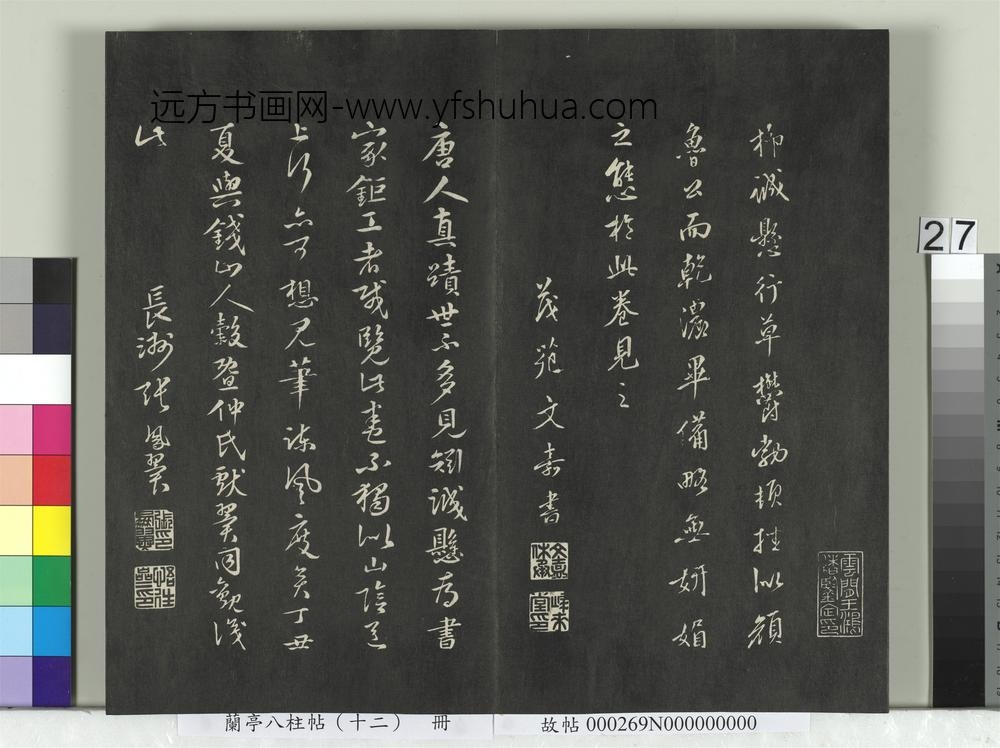 远方书画网-www.yfshuhua.com
柳誠懸行草欝勃頓挫似顏
魯公而乾濃畢備略無妍媚
之態於此卷見之
茂苑文嘉書
唐人真蹟世不多見矧誠懸為書
家鉅工者哉覽此卷不獨似山陰道
上行亦可想見筆諫風度矣丁丑
夏與錢山人穀暨仲氏獻翼同觀識
此
長洲張鳳翼
雲間王鴻緒鑒定印
文嘉休承
27
蘭亭八柱帖（十二） 冊
故帖 000269N000000000